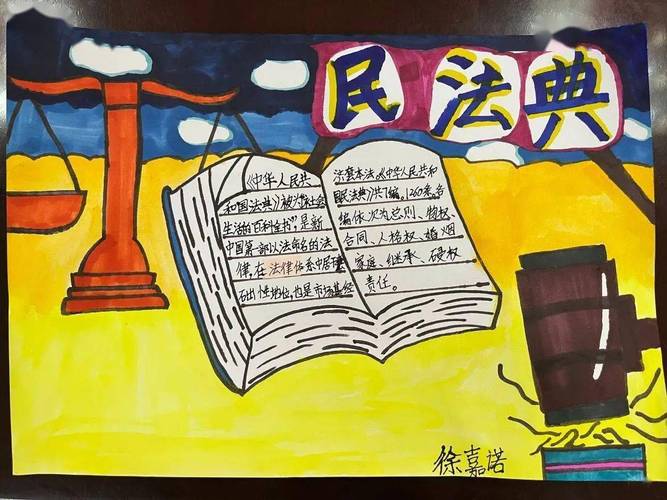 民法典
《中华人民共
和国法典》被为称社会
生活的百科全书", 是新
中国第一部以法命名的法
律, 在法律体系中居基
础性地位, 也是市场基经
济基本法。《中华人民共和
国民法典》共7编、1260条, 各
编依次为总则、物权、
合同、人格权、婚姻
家庭、继承、侵权
责任。
徐嘉诺